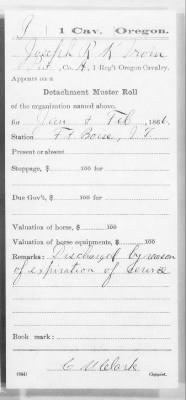 I | 1 Cav. | Oregon.
Joseph R. K. Irvin
Pvt, Co. A, 1 Reg't Oregon Cavalry.
Appears on a
Detachment Muster Roll
of the organization named above,
for Jan & Feb, 1866.
Station Ft Boise, I. T.
Present or absent
Stoppage, $ 100 for
Due Gov't, $ 100 for
Valuation of horse, $ 100
Valuation of horse equipments, $ 100
Remarks: Discharged by reason
of expiration of service
Book mark:
C M Clark
(364) Copyist.